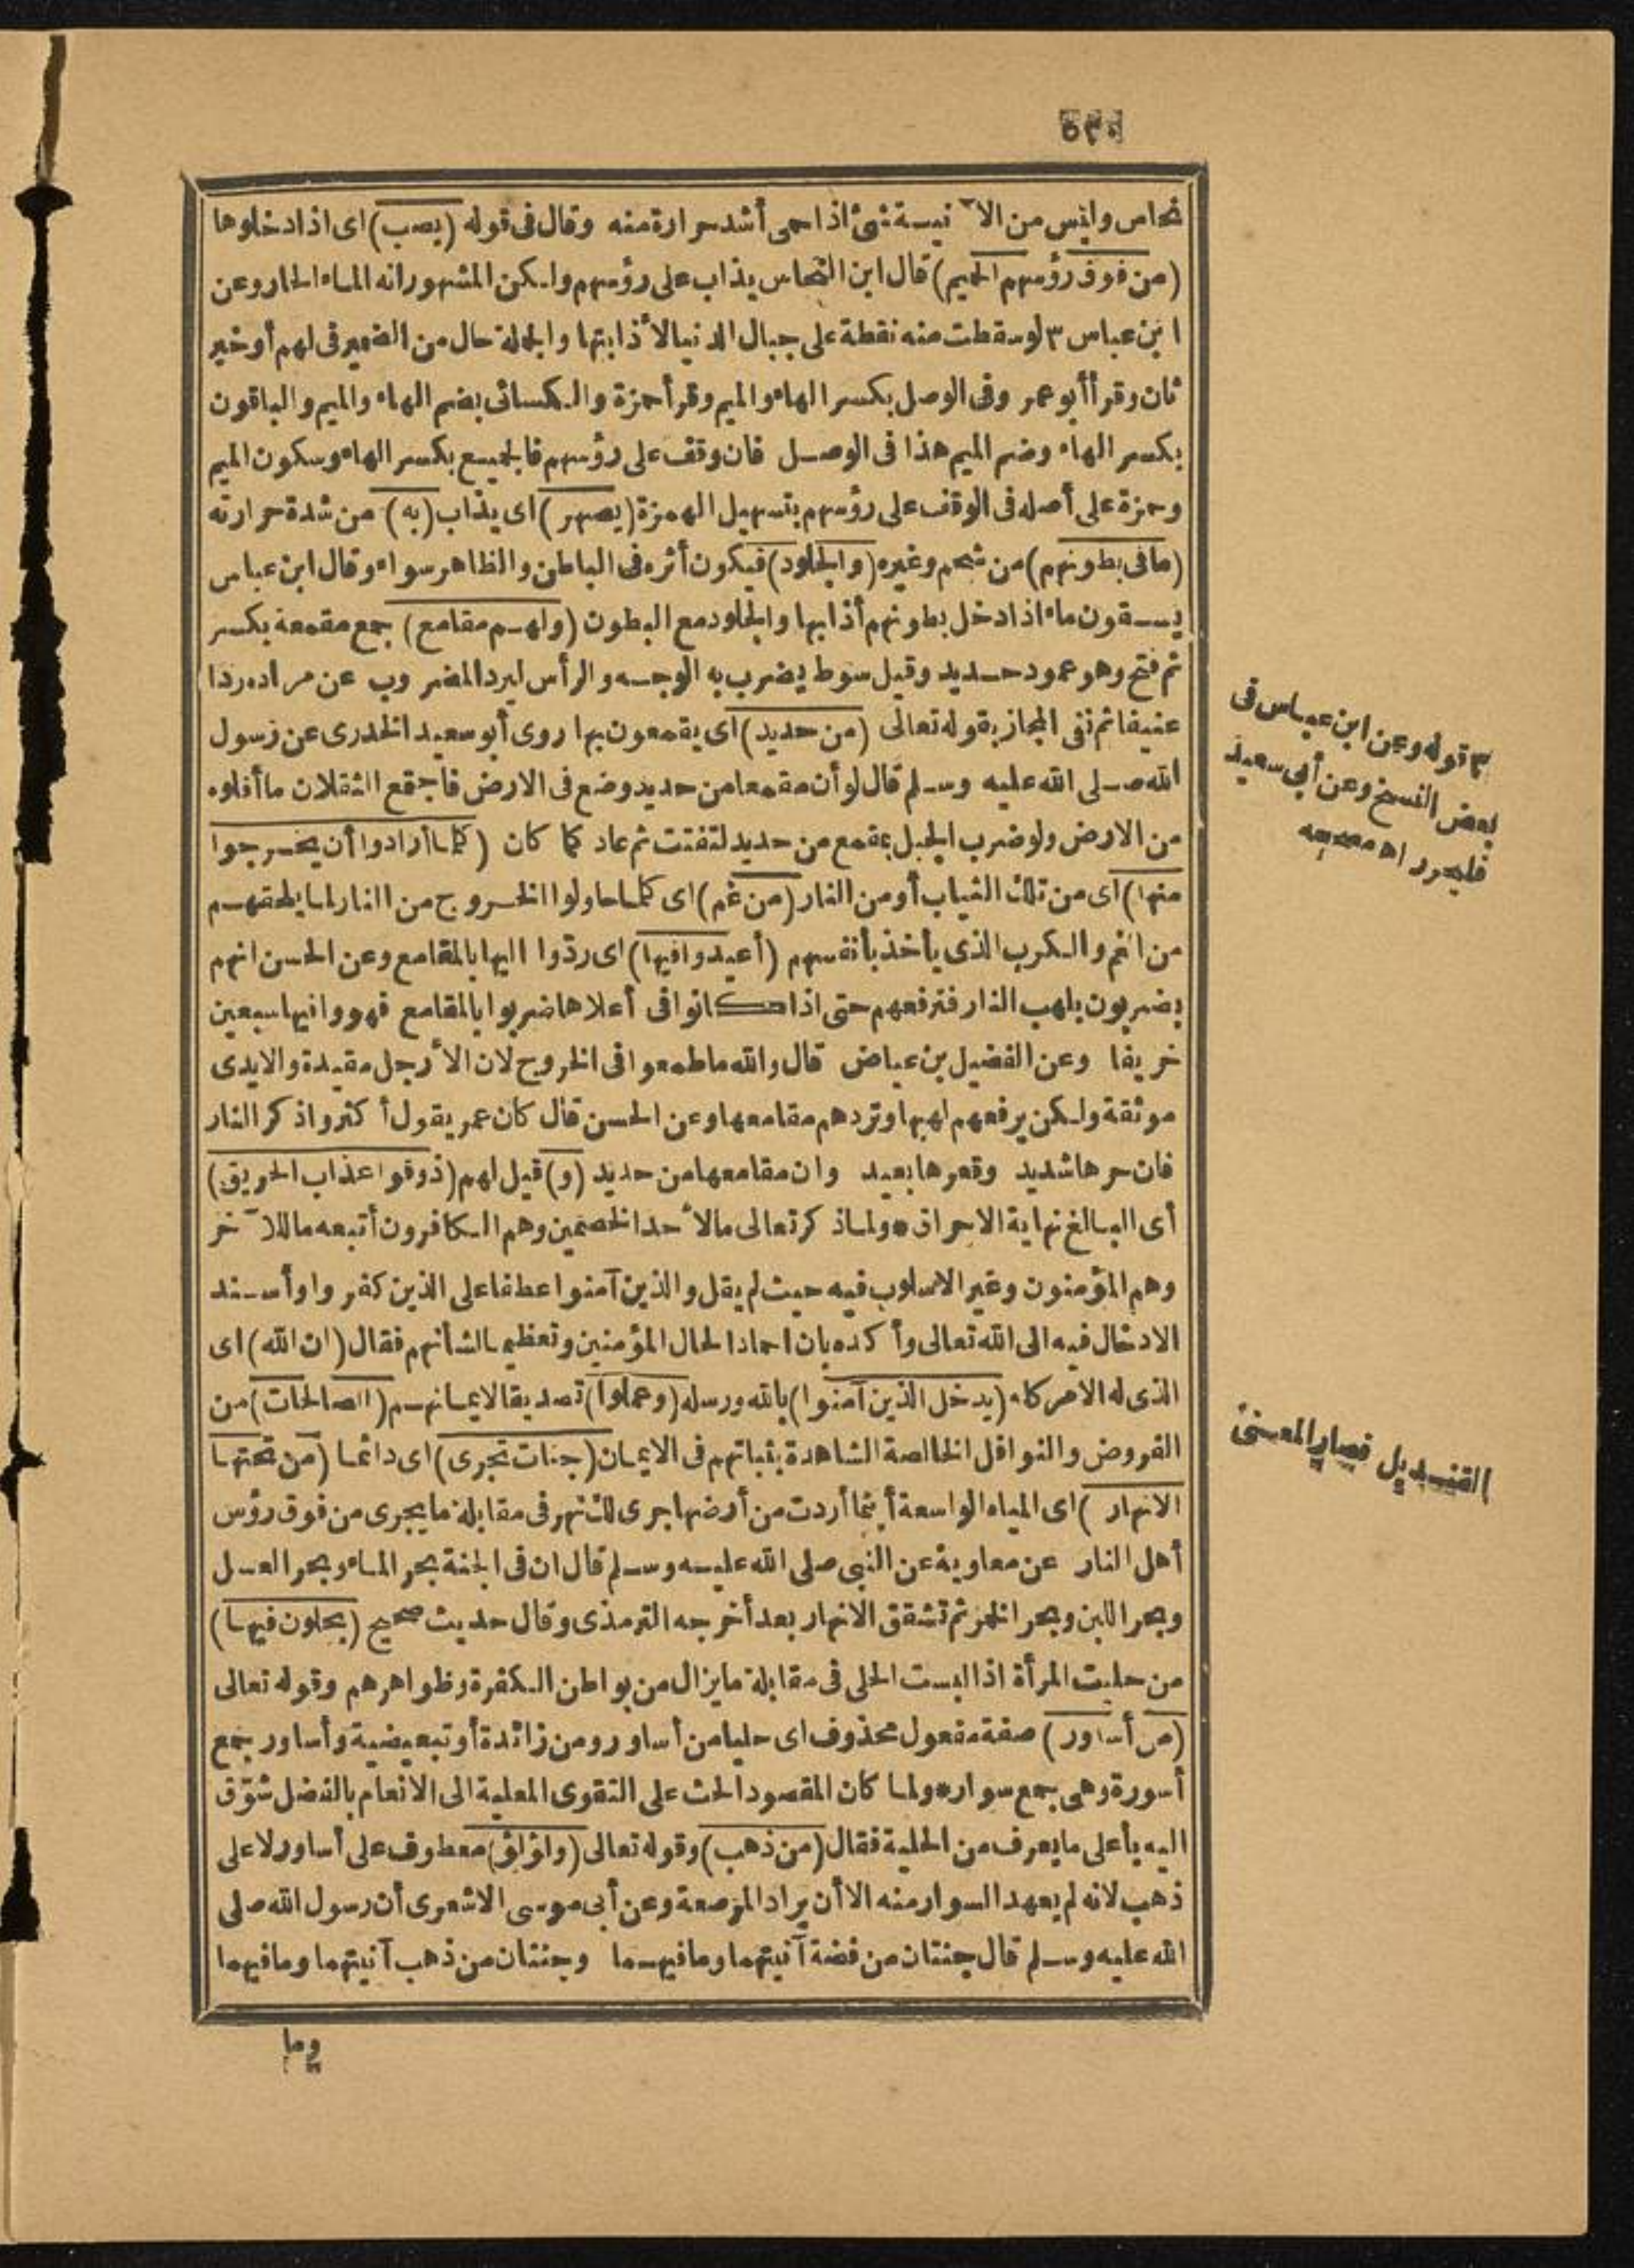 ٥٣٠
نحاس وليس من الآنية شئ اذا حمى أشد حرارة منه وقال فى قوله (يصب) اى اذا دخلوها
(من فوق رؤسهم الحميم) قال ابن النحاس يذاب على رؤسهم ولكن المشهور انه الماء الحار وعن
ابن عباس ٣ لو سقطت منه نقطة على جبال الدنيا لأذابتها والجملة حال من الضمير فى لهم أو خبر
ثان وقرأ أبو عمرو فى الوصل بكسر الهاء والميم وقرأ حمزة والكسائى بضم الهاء والميم والباقون
بكسر الهاء وضم الميم هذا فى الوصل فان وقف على رؤسهم فالجميع بكسر الهاء وسكون الميم
وحمزة على أصله فى الوقف على رؤسهم بتسهيل الهمزة (يصهر) اى يذاب (به) من شدة حرارته
(ما فى بطونهم) من شحم وغيره (والجلود) فيكون أثره فى الباطن والظاهر سواء وقال ابن عباس
يسقون ماء اذا دخل بطونهم أذابها والجلود مع البطون (ولهم مقامع) جمع مقمعة بكسر
ثم فتح وهو عمود حديد وقيل سوط يضرب به الوجه والرأس ليرد المضروب عن مراده ردا
عنيفا ثم نفى المجاز بقوله تعالى (من حديد) اى يقمعون بها روى أبو سعيد الخدرى عن رسول
الله صلى الله عليه وسلم قال لو أن مقمعا من حديد وضع فى الارض فاجتمع الثقلان ما أقلوه
من الارض ولو ضرب الجبل بمقمع من حديد لتفتت ثم عاد كما كان (كلما أرادوا أن يخرجوا
منها) اى من تلك الثياب أو من النار (من غم) اى كلما حاولوا الخروج من النار لما يلحقهم
من الغم والكرب الذى يأخذ بأنفسهم (أعيدوا فيها) اى ردّوا اليها بالمقامع وعن الحسن انهم
يضربون بلهب النار فترفعهم حتى اذا كانوا فى أعلاها ضربوا بالمقامع فهووا فيها سبعين
خريفا وعن الفضيل بن عياض قال والله ما طمعوا فى الخروج لان الأرجل مقيدة والايدى
موثقة ولكن يرفعهم لهبها وتردهم مقامعها وعن الحسن قال كان عمر يقول أكثروا ذكر النار
فان حرها شديد وقعرها بعيد وان مقامعها من حديد (و) قيل لهم (ذوقوا عذاب الحريق)
أى البالغ نهاية الاحراق * ولما ذكر تعالى ما لأحد الخصمين وهم الكافرون أتبعه ما للآخر
وهم المؤمنون وغير الاسلوب فيه حيث لم يقل والذين آمنوا عطفا على الذين كفروا وأسند
الادخال فيه الى الله تعالى وأكده بان احمادا لحال المؤمنين وتعظيما لشأنهم فقال (ان الله) اى
الذى له الأمر كله (يدخل الذين آمنوا) بالله ورسله (وعملوا) تصديقا لايمانهم (الصالحات) من
الفروض والنوافل الخالصة الشاهدة بثباتهم فى الايمان (جنات تجرى) اى دائما (من تحتها
الانهار) اى المياه الواسعة أينما أردت من أرضها جرى لك نهر فى مقابلة ما يجرى من فوق رؤس
أهل النار عن معاوية عن النبى صلى الله عليه وسلم قال ان فى الجنة بحر الماء وبحر العسل
وبحر اللبن وبحر الخمر ثم تشقق الانهار بعد أخرجه الترمذى وقال حديث صحيح (يحلون فيها)
من حليت المرأة اذا لبست الحلى فى مقابلة ما يزال من بواطن الكفرة وظواهرهم وقوله تعالى
(من أساور) صفة مفعول محذوف اى حليا من أساور ومن زائدة أو تبعيضية وأساور جمع
أسورة وهى جمع سوار * ولما كان المقصود الحث على التقوى المعلية الى الانعام بالفضل شوّق
اليه بأعلى ما يعرف من الحلية فقال (من ذهب) وقوله تعالى (ولؤلؤ) معطوف على أساور لا على
ذهب لانه لم يعهد السوار منه الا أن يراد المرصعة وعن أبى موسى الاشعرى أن رسول الله صلى
الله عليه وسلم قال جنتان من فضة آنيتهما وما فيهما وجنتان من ذهب آنيتهما وما فيهما
وما
٣ قوله وعن ابن عباس فى
بعض النسخ وعن أبى سعيد
فليحرر اه مصححه
القنديل فصار المعنى